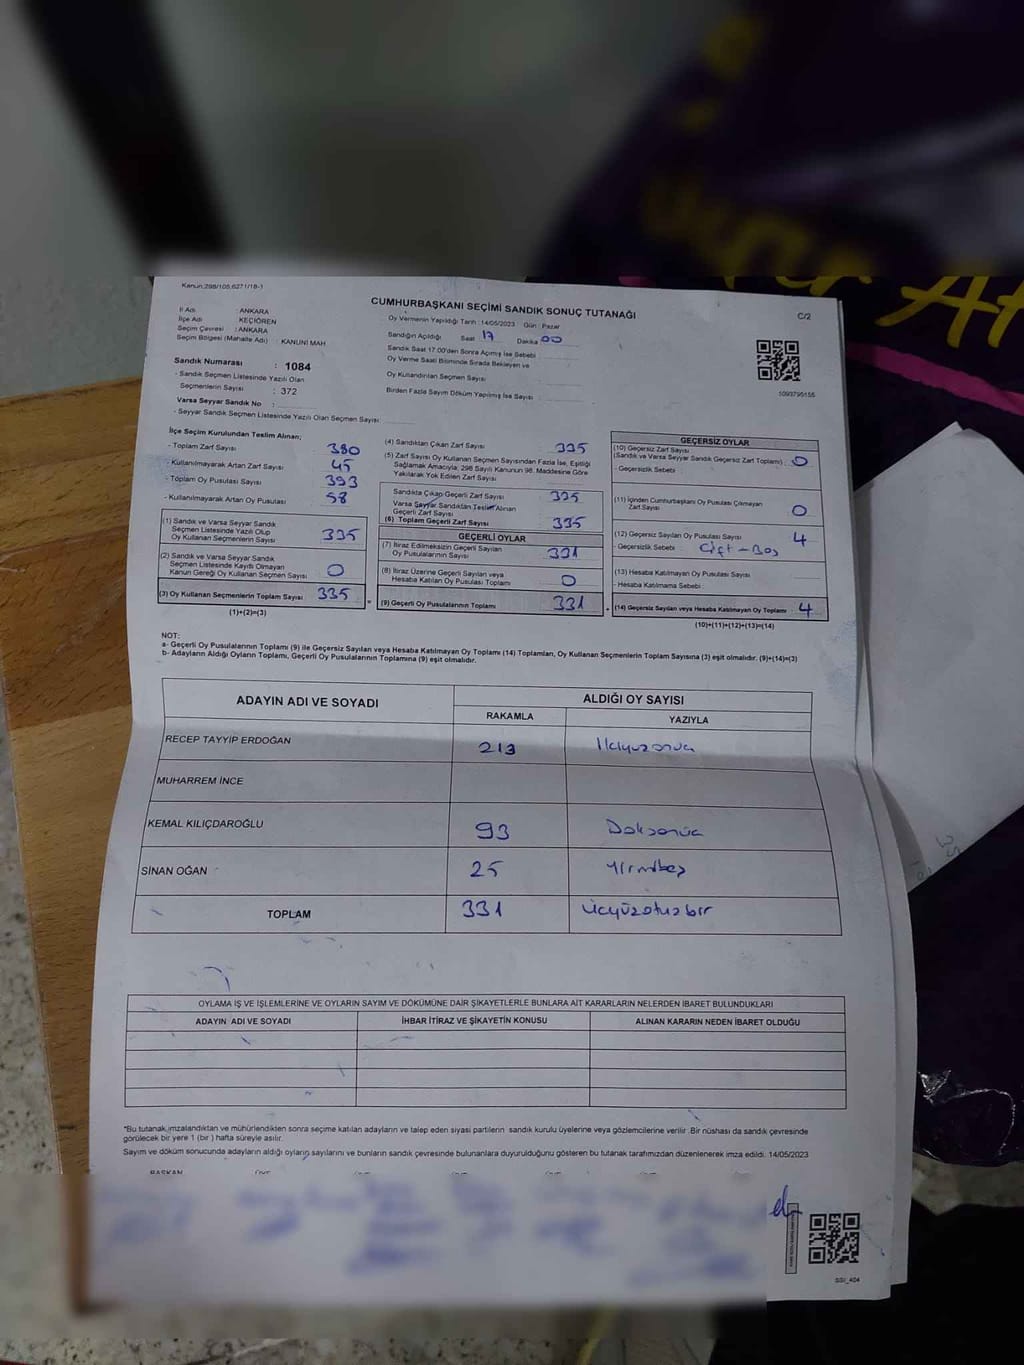 Kanun:298/105,6271/18-1
CUMHURBAŞKANI SEÇİMİ SANDIK SONUÇ TUTANAĞI
C/2
İl Adı : ANKARA
İlçe Adı : KEÇİÖREN
Seçim Çevresi : ANKARA
Seçim Bölgesi (Mahalle Adı) : KANUNİ MAH
Sandık Numarası : 1084
- Sandık Seçmen Listesinde Yazılı Olan
Seçmenlerin Sayısı : 372
Varsa Seyyar Sandık No :
- Seyyar Sandık Seçmen Listesinde Yazılı Olan Seçmen Sayısı:
Oy Vermenin Yapıldığı Tarih :14/05/2023 Gün : Pazar
Sandığın Açıldığı Saat 17 Dakika 00
Sandık Saat 17.00'den Sonra Açımış İse Sebebi
Oy Verme Saati Bitiminde Sırada Bekleyen ve
Oy Kullandırılan Seçmen Sayısı
Birden Fazla Sayım Döküm Yapılmış İse Sayısı :
1093795155
İlçe Seçim Kurulundan Teslim Alınan;
- Toplam Zarf Sayısı 380
- Kullanılmayarak Artan Zarf Sayısı 45
- Toplam Oy Pusulası Sayısı 393
- Kullanılmayarak Artan Oy Pusulası 58
(1) Sandık ve Varsa Seyyar Sandık
Seçmen Listesinde Yazılı Olup
Oy Kullanan Seçmenlerin Sayısı 335
(2) Sandık ve Varsa Seyyar Sandık
Seçmen Listesinde Kayıtlı Olmayan
Kanun Gereği Oy Kullanan Seçmen Sayısı 0
(3) Oy Kullanan Seçmenlerin Toplam Sayısı 335
(1)+(2)=(3)
(4) Sandıktan Çıkan Zarf Sayısı 335
(5) Zarf Sayısı Oy Kullanan Seçmen Sayısından Fazla İse, Eşitliği
Sağlamak Amacıyla, 298 Sayılı Kanunun 98. Maddesine Göre
Yakılarak Yok Edilen Zarf Sayısı
Sandıkta Çıkan Geçerli Zarf Sayısı 335
Varsa Seyyar Sandıktan Teslim Alınan
Geçerli Zarf Sayısı
(6) Toplam Geçerli Zarf Sayısı 335
GEÇERLİ OYLAR
(7) İtiraz Edilmeksizin Geçerli Sayılan
Oy Pusulalarının Sayısı 331
(8) İtiraz Üzerine Geçerli Sayılan veya
Hesaba Katılan Oy Pusulası Toplamı 0
(9) Geçerli Oy Pusulalarının Toplamı 331
GEÇERSİZ OYLAR
(10) Geçersiz Zarf Sayısı
(Sandık ve Varsa Seyyar Sandık Geçersiz Zarf Toplamı) 0
- Geçersizlik Sebebi
(11) İçinden Cumhurbaşkanı Oy Pusulası Çıkmayan
Zarf Sayısı 0
(12) Geçersiz Sayılan Oy Pusulası Sayısı 4
- Geçersizlik Sebebi Çift - Boş
(13) Hesaba Katılmayan Oy Pusulası Sayısı
- Hesaba Katılmama Sebebi
(14) Geçersiz Sayılan veya Hesaba Katılmayan Oy Toplamı 4
(10)+(11)+(12)+(13)=(14)
NOT:
a- Geçerli Oy Pusulalarının Toplamı (9) ile Geçersiz Sayılan veya Hesaba Katılmayan Oy Toplamı (14) Toplamları, Oy Kullanan Seçmenlerin Toplam Sayısına (3) eşit olmalıdır. (9)+(14)=(3)
b- Adayların Aldığı Oyların Toplamı, Geçerli Oy Pusulalarının Toplamına (9) eşit olmalıdır.
ADAYIN ADI VE SOYADI ALDIĞI OY SAYISI
RAKAMLA YAZIYLA
RECEP TAYYİP ERDOĞAN 213 İkiyüzonüç
MUHARREM İNCE
KEMAL KILIÇDAROĞLU 93 Doksanüç
SİNAN OĞAN 25 Yirmibeş
TOPLAM 331 Üçyüzotuzbir
OYLAMA İŞ VE İŞLEMLERİNE VE OYLARIN SAYIM VE DÖKÜMÜNE DAİR ŞİKAYETLERLE BUNLARA AİT KARARLARIN NELERDEN İBARET BULUNDUKLARI
ADAYIN ADI VE SOYADI İHBAR İTİRAZ VE ŞİKAYETİN KONUSU ALINAN KARARIN NEDEN İBARET OLDUĞU
*Bu tutanak,imzalandıktan ve mühürlendikten sonra seçime katılan adayların ve talep eden siyasi partilerin sandık kurulu üyelerine veya gözlemcilerine verilir .Bir nüshası da sandık çevresinde
görülecek bir yere 1 (bir ) hafta süreyle asılır.
Sayım ve döküm sonucunda adayların aldığı oyların sayılarını ve bunların sandık çevresinde bulunanlara duyurulduğunu gösteren bu tutanak tarafımızdan düzenlenerek imza edildi. 14/05/2023
BAŞKAN
SGI_404